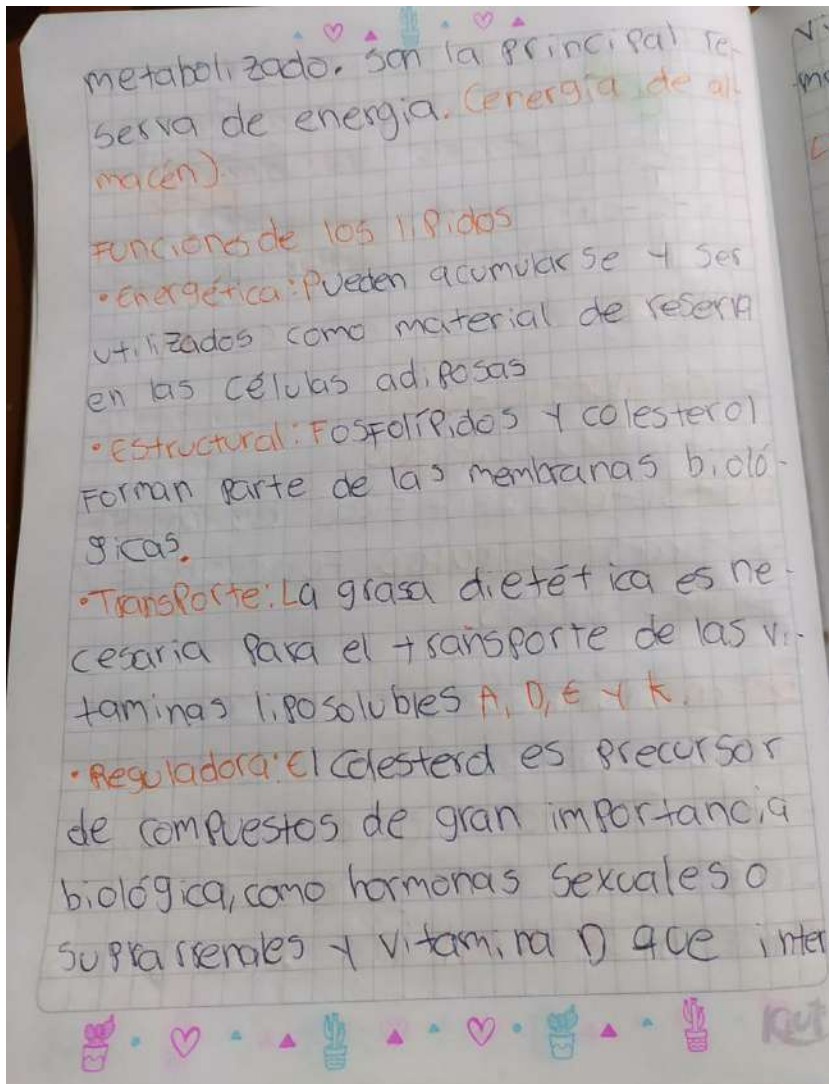 metabolizado. son la principal re-
serva de energia. (energía de al
macén).
Funciones de los lípidos
• Energética: Pueden acumularse y ser
utilizados como material de reserva
en las células adiposas
• Estructural: Fosfolípidos y colesterol
Forman parte de las membranas bioló-
gicas.
• Transporte: La grasa dietética es ne-
cesaria para el transporte de las vi-
taminas liposolubles A, D, E y K.
• Reguladora: El colesterol es precursor
de compuestos de gran importancia
biológica, como hormonas sexuales o
suprarrenales y vitamina D que inter